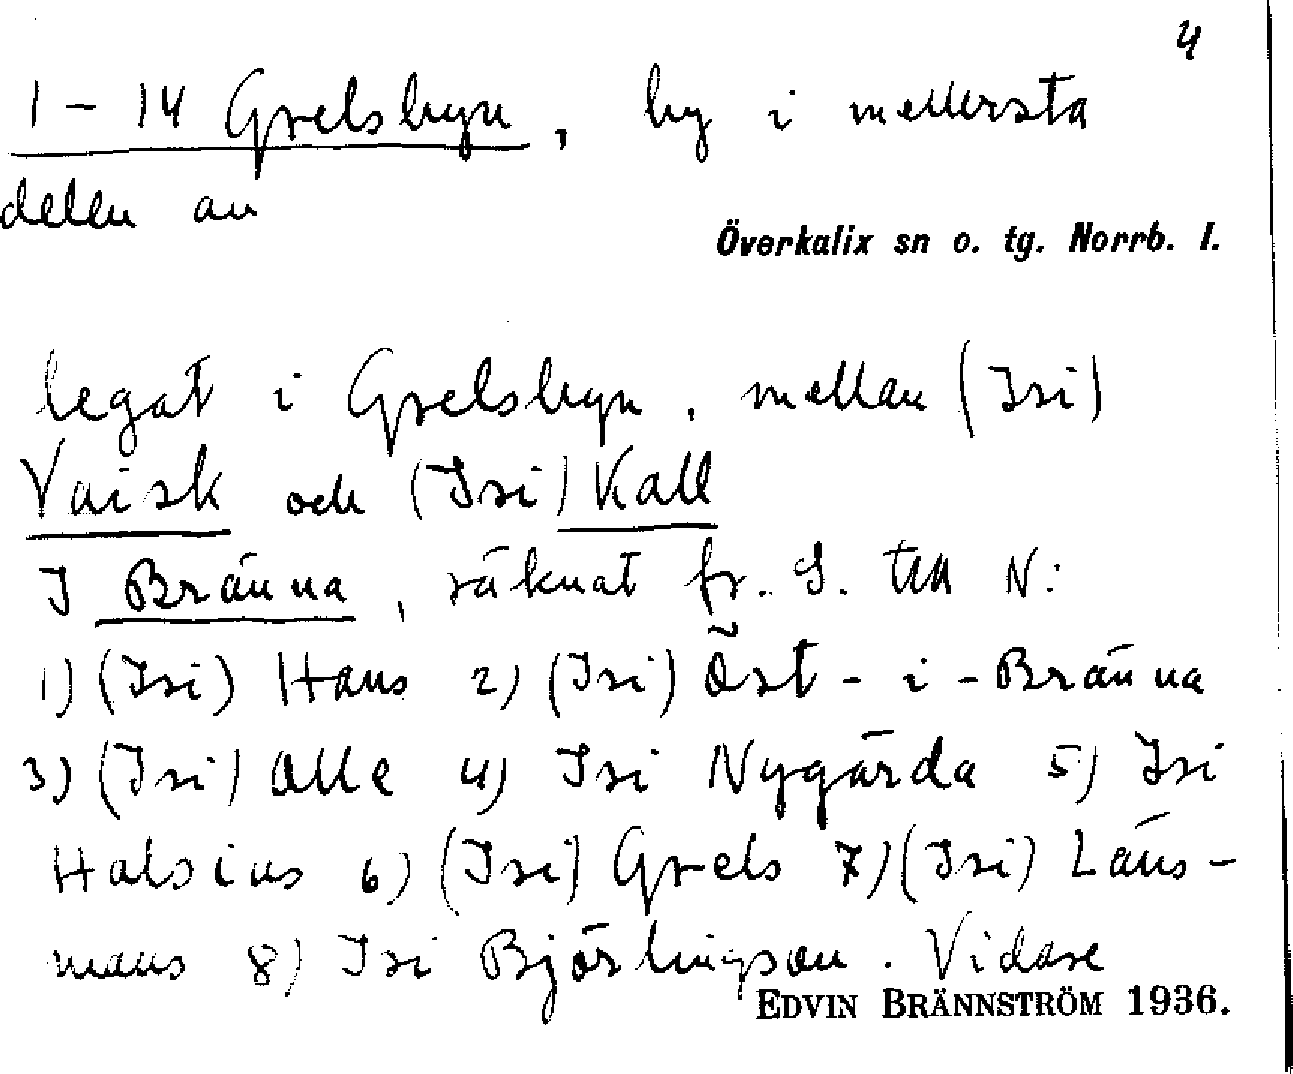 4
1 - 14 Grelsbyn, by i mellersta
delen av
Överkalix sn o. tg. Norrb. l.
legat i Grelsbyn, mellan (Isi)
Vaisk och (Isi) Kall
I Bränna, räknat fr. S. till N:
1) (Isi) Hans 2) (Isi) Öst - i - Bränna
3) (Isi) Olle 4) Isi Nygårda 5) Isi
Halsius 6) (Isi) Grels 7) (Isi) Läns-
mans 8) Isi Björlingson. Vidare
EDVIN BRÄNNSTRÖM 1936.